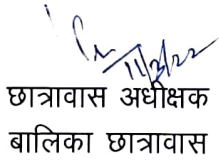 11/3/22
छात्रावास अधीक्षक
बालिका छात्रावास